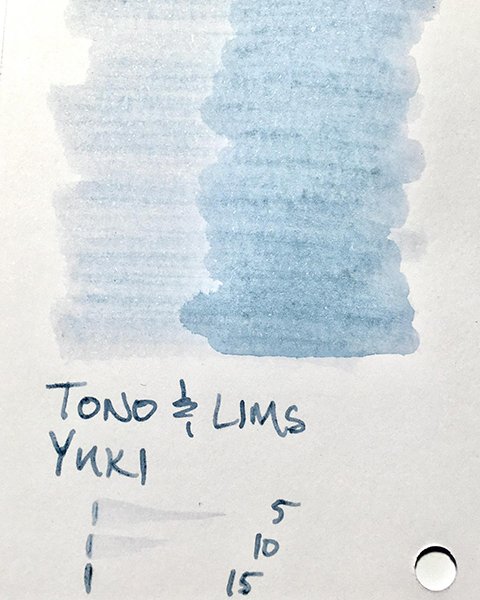 TONO & LIMS
YUKI
5
10
15